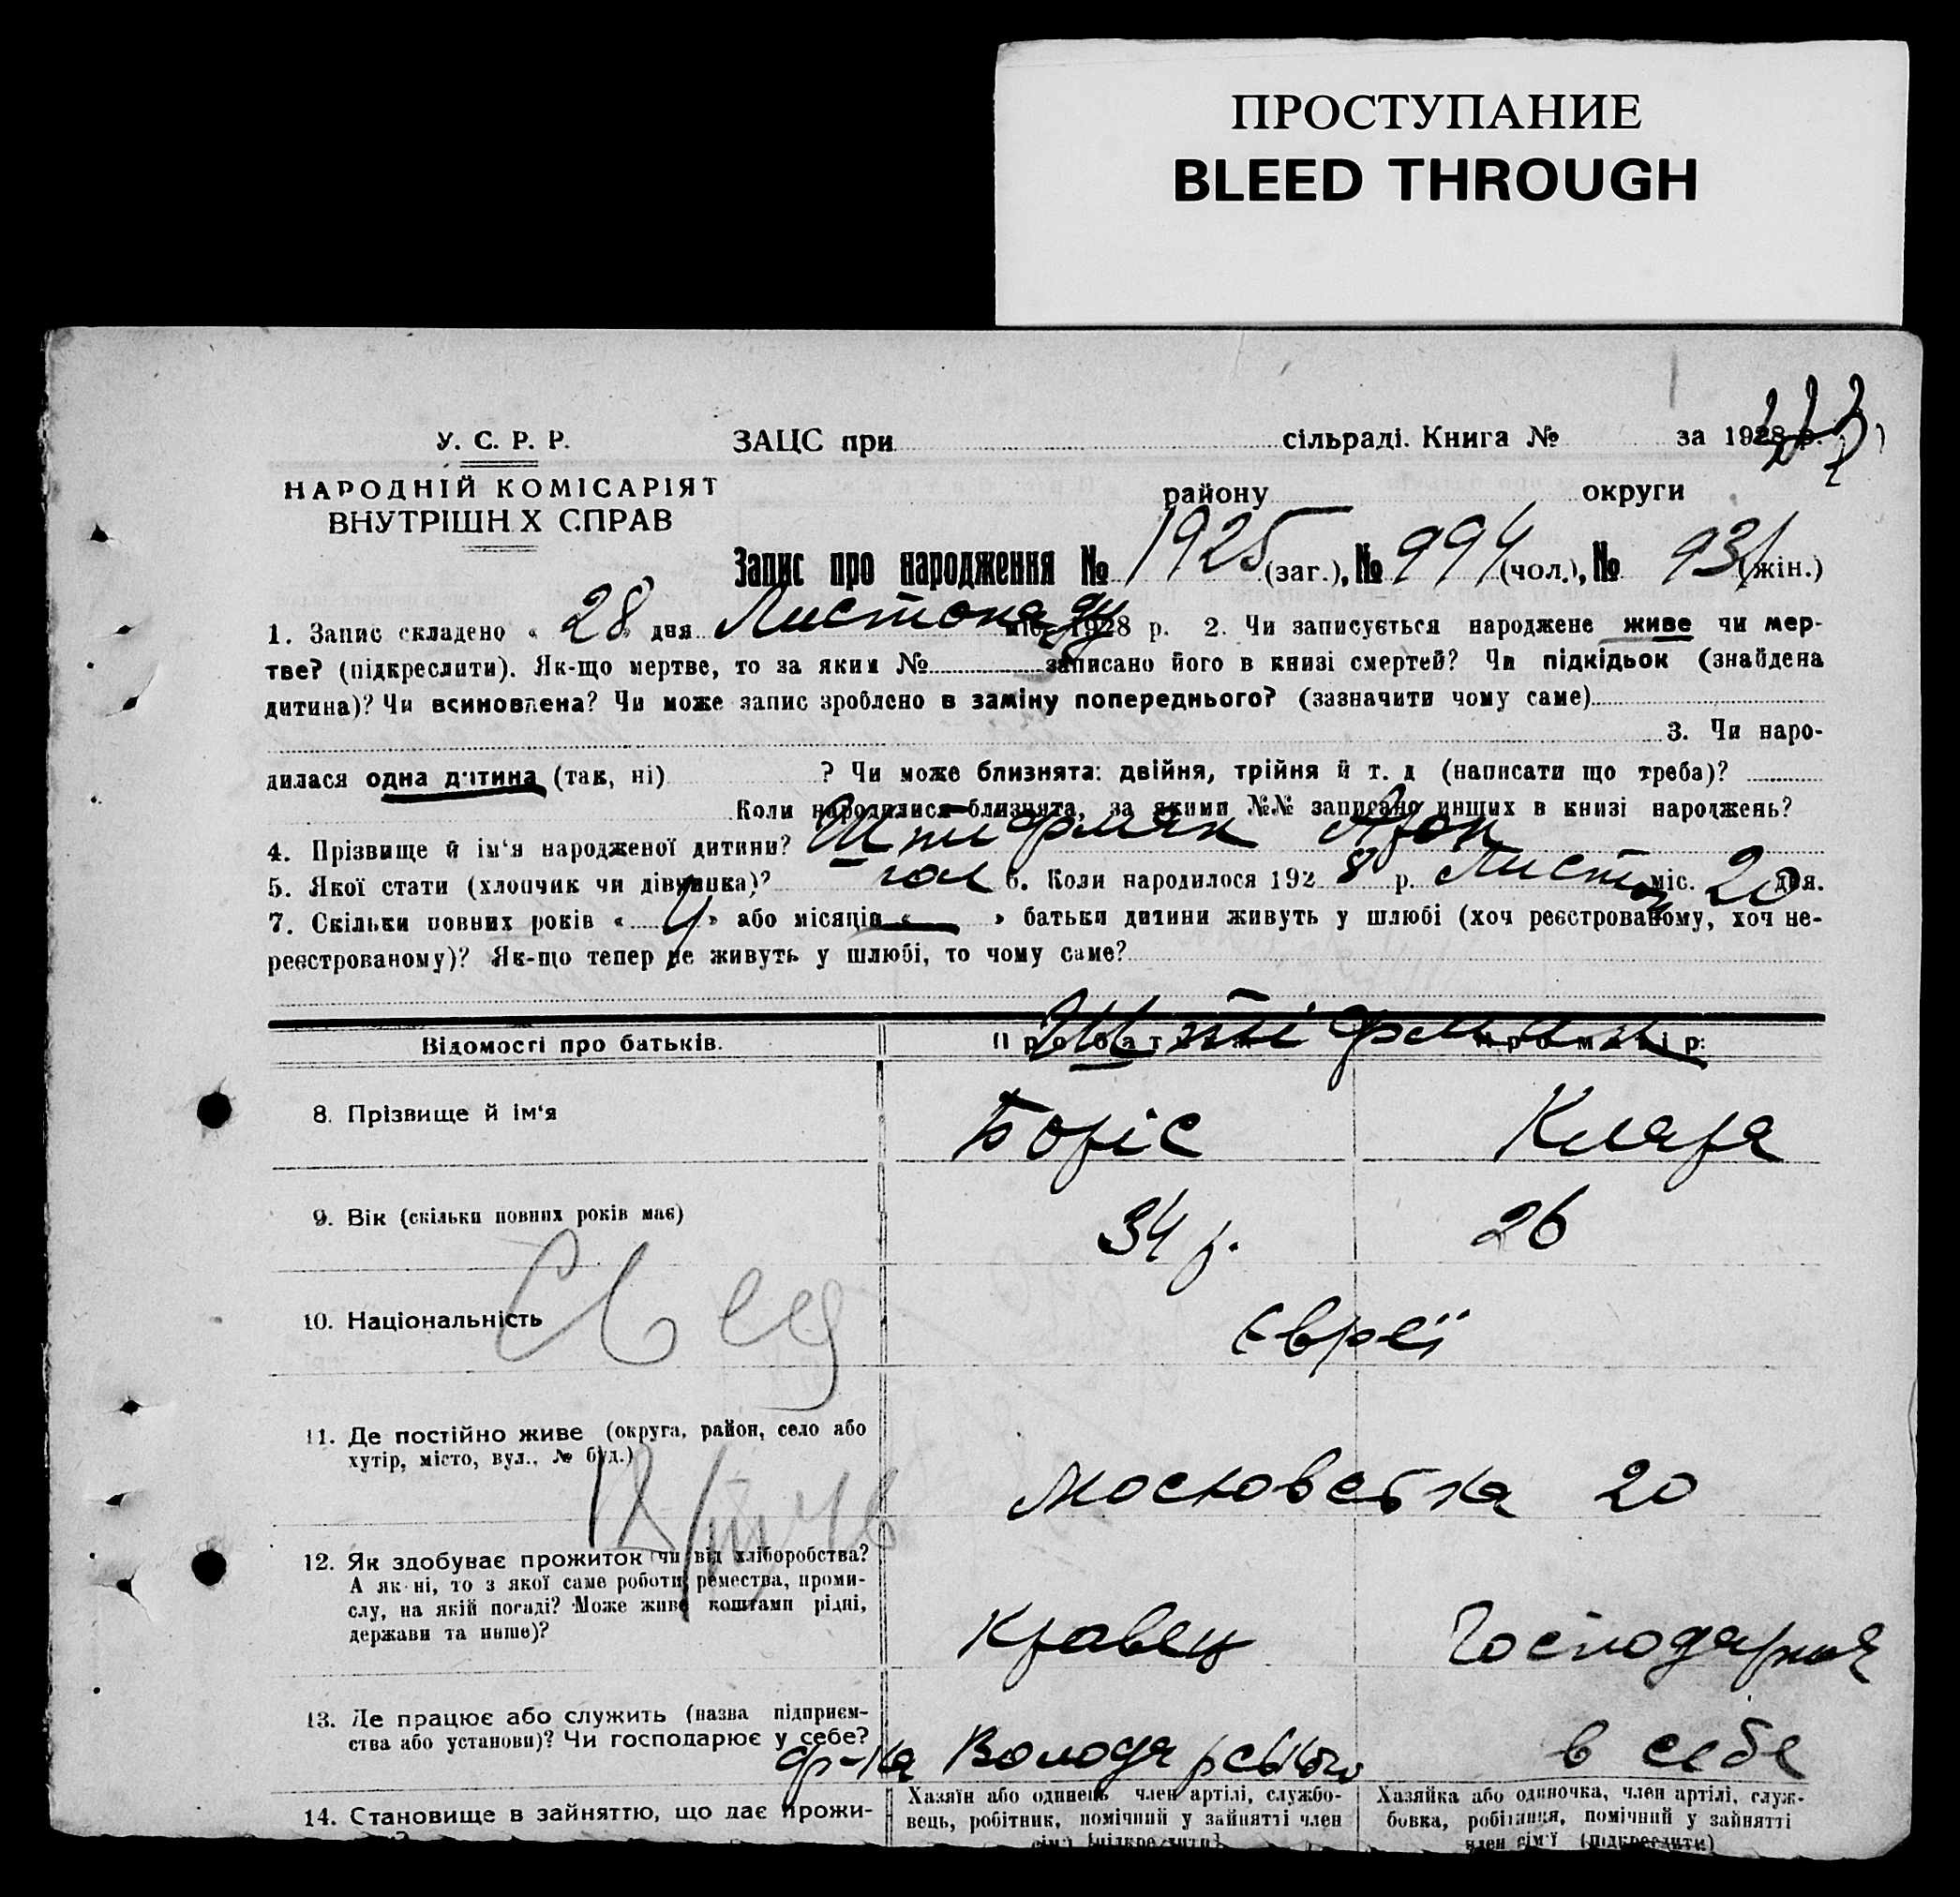 ПРОСТУПАНИЕ
BLEED THROUGH
223
У. С. Р. Р.
НАРОДНІЙ КОМІСАРІЯТ
ВНУТРІШН Х СПРАВ
ЗАЦС при сільраді. Книга № за 1928 р.
району округи
Запис про народження № 1925 (заг.), № 994 (чол.), № 931 (жін.)
1. Запис складено « 28 » дня Листопаду міс. 1928 р. 2. Чи записується народжене живе чи мер-
тве? (підкреслити). Як-що мертве, то за яким № записано його в книзі смертей? Чи підкідьок (знайдена
дитина)? Чи всиновлена? Чи може запис зроблено в заміну попереднього? (зазначити чому саме)
3. Чи наро-
дилася одна дитина (так, ні) ? Чи може близнята: двійня, трійня й т. д (написати що треба)?
Коли народилися близнята, за якими №№ записано инших в книзі народжень?
4. Прізвище й ім'я народженої дитини? Штифман
5. Якої стати (хлопчик чи дівчинка)? чол 6. Коли народилося 1928 р. Листоп міс. 20 дня.
7. Скільки повних років « 4 » або місяців « — » батьки дитини живуть у шлюбі (хоч реєстрованому, хоч не-
реєстрованому)? Як-що тепер не живуть у шлюбі, то чому саме?
Відомості про батьків. Про батька Про матір:
Штіфман
8. Прізвище й ім'я Боріс Клара
9. Вік (скільки повних років має) 34 р. 26
10. Національність Євреї
11. Де постійно живе (округа, район, село або
хутір, місто, вул., № буд.)
Московська 20
12. Як здобуває прожиток чи від хліборобства?
А як-ні, то з якої саме роботи, ремества, проми-
слу, на якій посаді? Може живе коштами рідні,
держави та инше)?
Кравець Господарка
13. Де працює або служить (назва підприєм-
ства або установи)? Чи господарює у себе?
ф-ка Володарського в себе
14. Становище в зайняттю, що дає прожи-
Хазяїн або одинець член артілі, службо-
вець, робітник, помічний у зайнятті член
сім'ї (підкреслити)
Хазяйка або одиночка, член артілі, служ-
бовка, робітниця, помічний у зайнятті
член сім'ї (підкреслити)